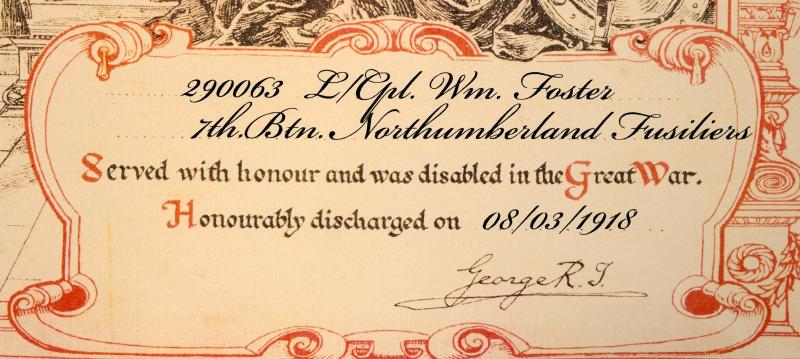 290063 L/Cpl. Wm. Foster
7th. Btn. Northumberland Fusiliers
Served with honour and was disabled in the Great War.
Honourably discharged on 08/03/1918
George R. I.